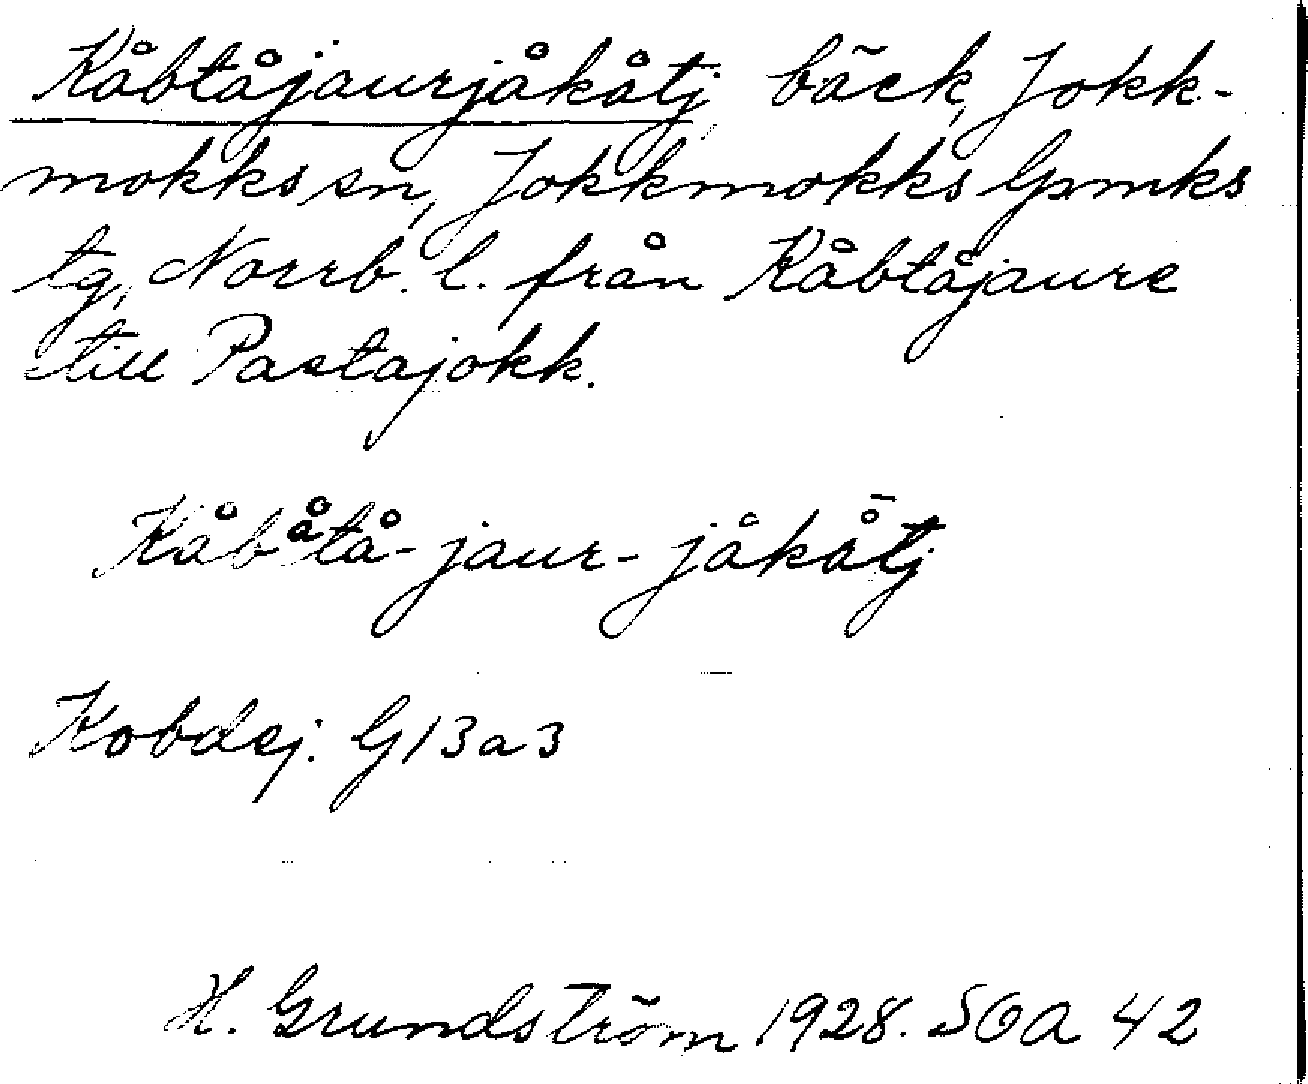 Kåbtåjaurjåkåtj, bäck, Jokk-
mokks sn, Jokkmokks Gpmks
tg, Norrb. l. från Kåbtåjaure
till Pastajokk.
Kåbåtå-jaur-jåkå̄tj
Kobdej. G13a3
H. Grundström 1928. SOA 42